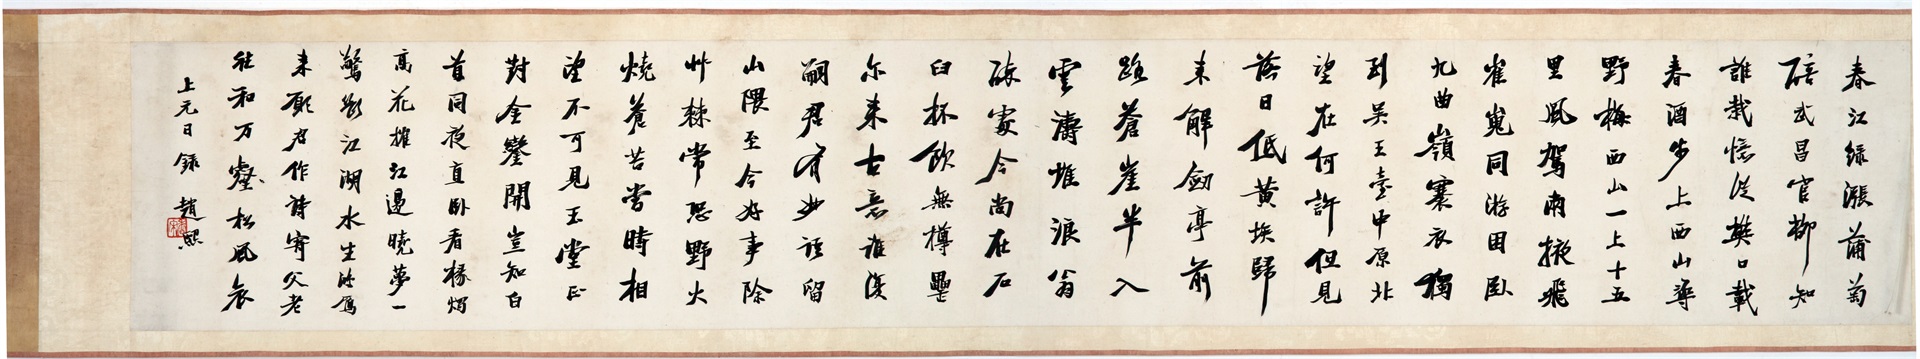 春江緑漲蒲萄
醅武昌官柳知
誰栽憶從樊口載
春酒步上西山尋
野梅西山一上十五
里風駕兩掖飛
崔嵬同游困卧
九曲嶺褰衣獨
到吴王臺中原北
望在何許但見
落日低黄埃歸
来解劒亭前
路蒼崖半入
雲濤堆浪翁
醉處今尚在石
臼杯飲無樽罍
尔来古意誰復
嗣君有妙語留
山隈至今好事除
艸棘常恐野火
燒蒼苔當時相
望不可見玉堂正
對金鑾開豈知白
首同夜直卧看椽燭
高花摧江邊曉夢一
驚斷江湖水生鴻雁
来願君作詩寄父老
往和万壑松風哀
上元日録 趙熙